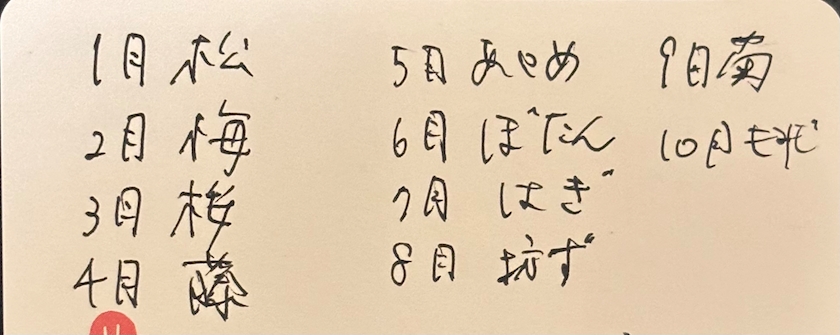 1月 松
2月 梅
3月 桜
4月 藤
5月 あやめ
6月 ぼたん
7月 はぎ
8月 坊ず
9月 菊
10月 もみじ